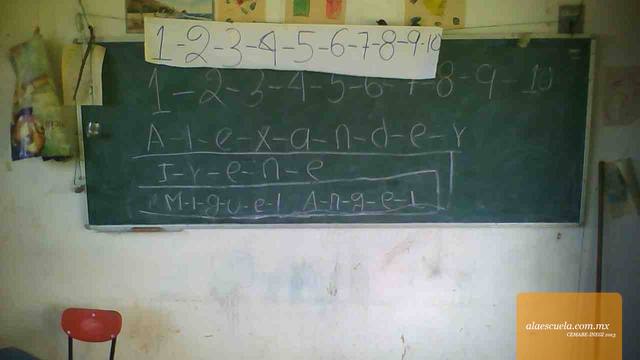 1-2-3-4-5-6-7-8-9-10
1-2-3-4-5-6-7-8-9-10
A-l-e-x-a-n-d-e-r
I-r-e-n-e
M-i-g-u-e-l A-n-g-e-l
alaescuela.com.mx
CEMABE-INEGI 2013